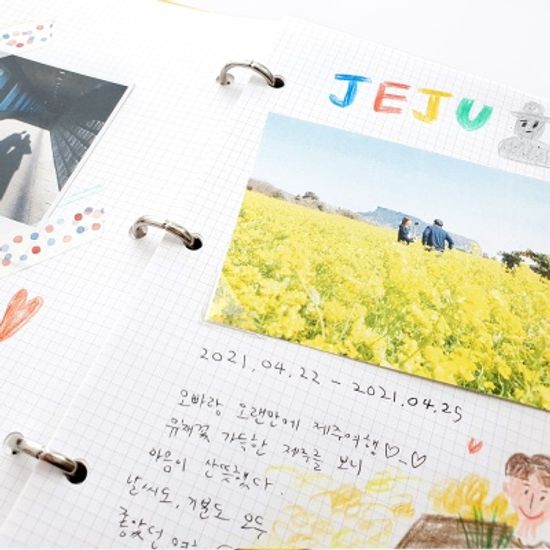 JEJU
2021.04.22 - 2021.04.25
오빠랑 오랜만에 제주여행♡-♡
유채꽃 가득한 제주를 보니
마음이 산뜻했다.
날씨도, 기분도 모두
좋았던 여행